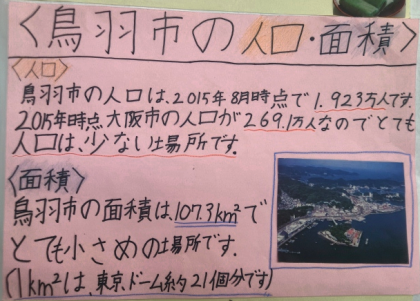 〈鳥羽市の人口・面積〉
〈人口〉
鳥羽市の人口は、2015年8月時点で1.923万人です
2015年時点大阪市の人口が269.1万人なのでとても
人口は、少ない場所です。
〈面積〉
鳥羽市の面積は、107.3km²で
とても小さめの場所です.
(1km²は、東京ドーム約21個分です)